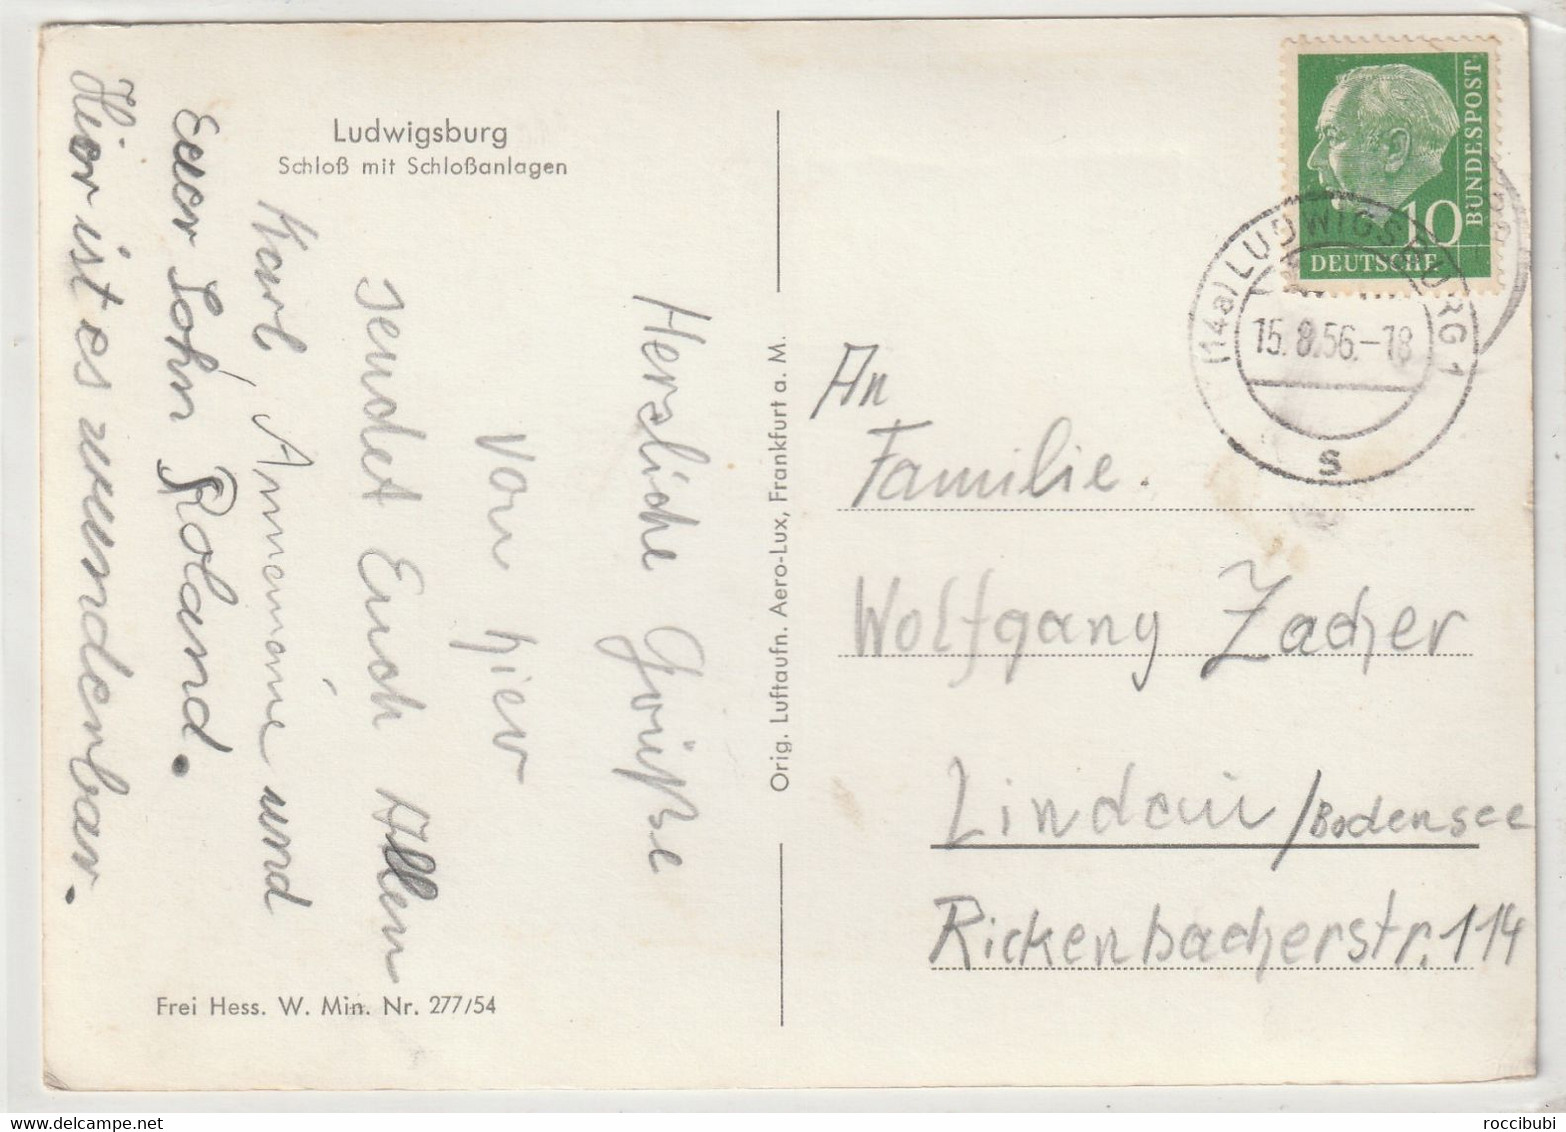 Ludwigsburg
Schloß mit Schloßanlagen
Herzliche Grüße
von hier
sendet Euch Allen
Karl, Annemarie und
Euer Sohn Roland.
Hier ist es wunderbar.
Frei Hess. W. Min. Nr. 277/54
Orig. Luftaufn. Aero-Lux, Frankfurt a. M.
10
BUNDESPOST
DEUTSCHE
(14a) LUDWIGSBURG 1
15.8.56.-18
s
An
Familie.
Wolfgang Zacher
Lindau/Bodensee
Rickenbacherstr. 114
roccibubi